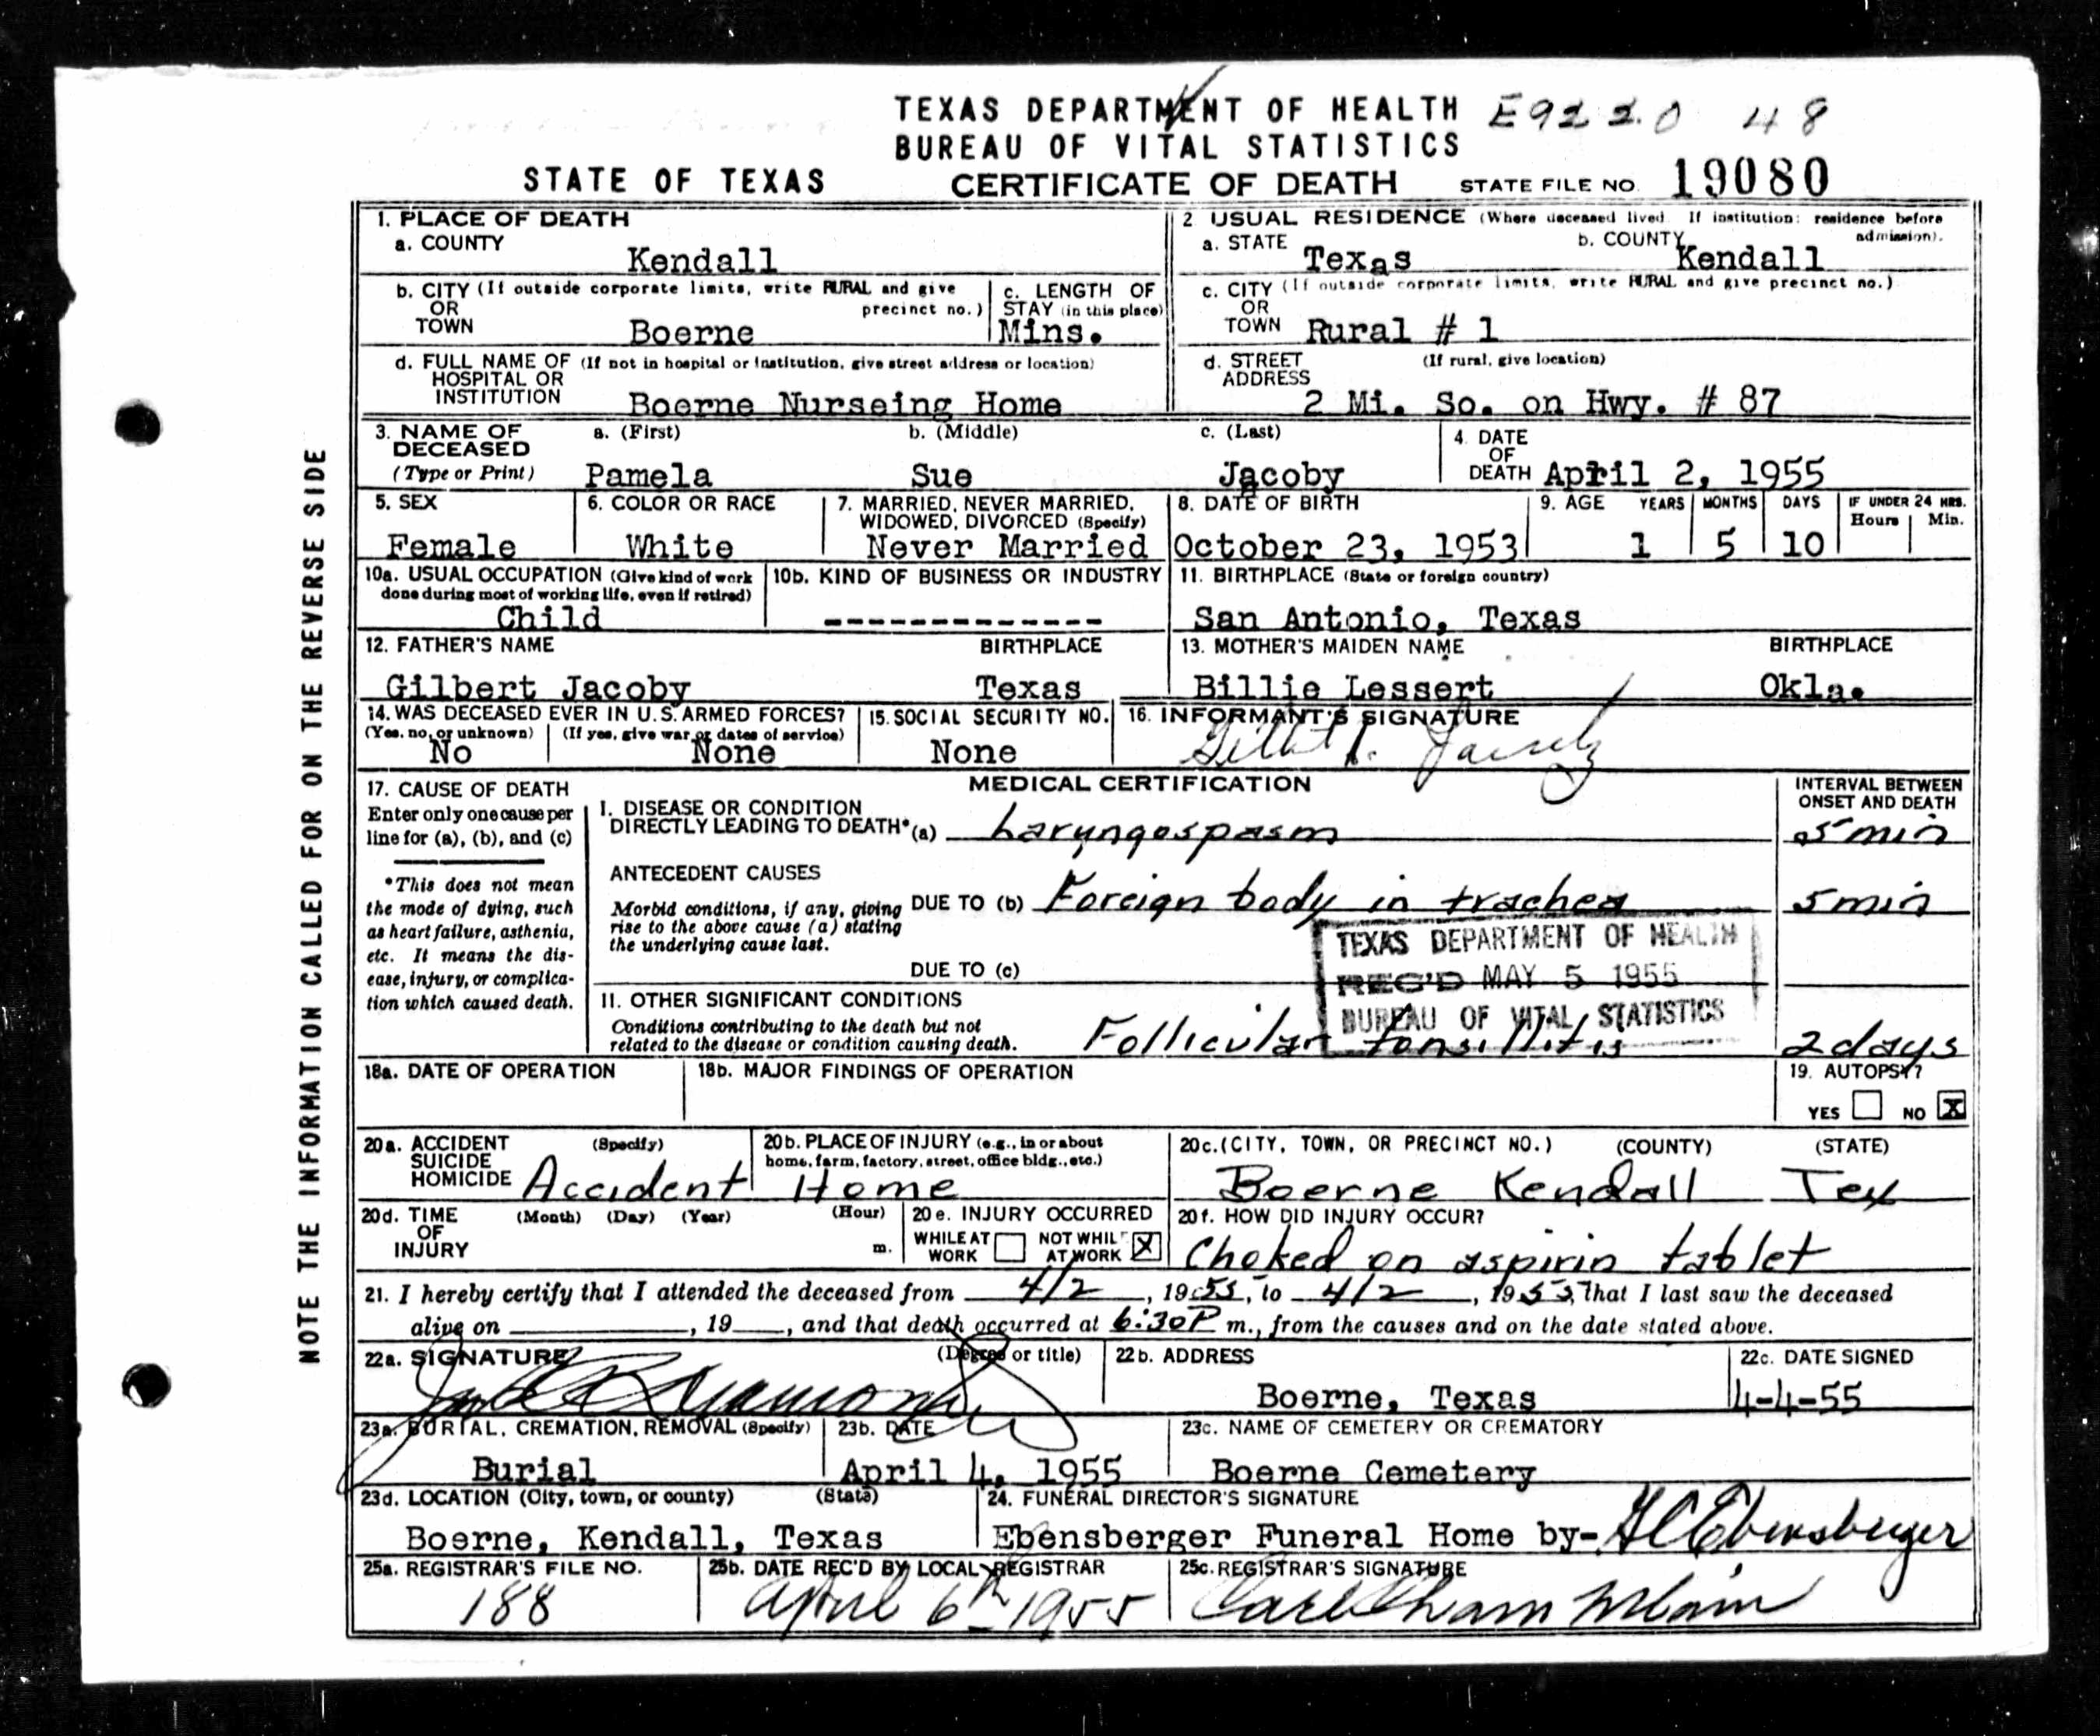 TEXAS DEPARTMENT OF HEALTH E9220 48
BUREAU OF VITAL STATISTICS
STATE OF TEXAS CERTIFICATE OF DEATH STATE FILE NO. 19080
NOTE THE INFORMATION CALLED FOR ON THE REVERSE SIDE
1. PLACE OF DEATH
a. COUNTY
Kendall
2 USUAL RESIDENCE (Where deceased lived. If institution: residence before admission).
a. STATE b. COUNTY
Texas Kendall
b. CITY (If outside corporate limits, write RURAL and give precinct no.)
OR
TOWN Boerne
c. LENGTH OF
STAY (in this place)
Mins.
c. CITY (If outside corporate limits, write RURAL and give precinct no.)
OR
TOWN Rural # 1
d. FULL NAME OF (If not in hospital or institution, give street address or location)
HOSPITAL OR
INSTITUTION Boerne Nurseing Home
d. STREET (If rural, give location)
ADDRESS
2 Mi. So. on Hwy. # 87
3. NAME OF a. (First) b. (Middle) c. (Last)
DECEASED
(Type or Print) Pamela Sue Jacoby
4. DATE
OF
DEATH April 2, 1955
5. SEX
Female
6. COLOR OR RACE
White
7. MARRIED, NEVER MARRIED,
WIDOWED, DIVORCED (Specify)
Never Married
8. DATE OF BIRTH
October 23, 1953
9. AGE YEARS MONTHS DAYS IF UNDER 24 HRS.
Hours Min.
1 5 10
10a. USUAL OCCUPATION (Give kind of work
done during most of working life, even if retired)
Child
10b. KIND OF BUSINESS OR INDUSTRY
-------------
11. BIRTHPLACE (State or foreign country)
San Antonio, Texas
12. FATHER'S NAME BIRTHPLACE
Gilbert Jacoby Texas
13. MOTHER'S MAIDEN NAME BIRTHPLACE
Billie Lessert Okla.
14. WAS DECEASED EVER IN U.S. ARMED FORCES?
(Yes, no, or unknown) (If yes, give war or dates of service)
No None
15. SOCIAL SECURITY NO.
None
16. INFORMANT'S SIGNATURE
17. CAUSE OF DEATH
Enter only one cause per
line for (a), (b), and (c)
*This does not mean
the mode of dying, such
as heart failure, asthenia,
etc. It means the dis-
ease, injury, or complica-
tion which caused death.
MEDICAL CERTIFICATION
INTERVAL BETWEEN
ONSET AND DEATH
I. DISEASE OR CONDITION
DIRECTLY LEADING TO DEATH* (a) Laryngospasm 5 min
ANTECEDENT CAUSES
Morbid conditions, if any, giving
rise to the above cause (a) stating
the underlying cause last.
DUE TO (b) Foreign body in trachea 5 min
DUE TO (c)
TEXAS DEPARTMENT OF HEALTH
REC'D MAY 5 1955
BUREAU OF VITAL STATISTICS
II. OTHER SIGNIFICANT CONDITIONS
Conditions contributing to the death but not
related to the disease or condition causing death.
Follicular tonsillitis 2 days
18a. DATE OF OPERATION
18b. MAJOR FINDINGS OF OPERATION
19. AUTOPSY?
YES NO X
20a. ACCIDENT (Specify)
SUICIDE
HOMICIDE Accident
20b. PLACE OF INJURY (e.g., in or about
home, farm, factory, street, office bldg., etc.)
Home
20c. (CITY, TOWN, OR PRECINCT NO.) (COUNTY) (STATE)
Boerne Kendall Tex
20d. TIME (Month) (Day) (Year) (Hour)
OF
INJURY m.
20e. INJURY OCCURRED
WHILE AT WORK NOT WHILE AT WORK X
20f. HOW DID INJURY OCCUR?
Choked on aspirin tablet
21. I hereby certify that I attended the deceased from 4/2, 1955, to 4/2, 1955, that I last saw the deceased
alive on , 19 , and that death occurred at 6:30 P m., from the causes and on the date stated above.
22a. SIGNATURE (Degree or title)
22b. ADDRESS
Boerne, Texas
22c. DATE SIGNED
4-4-55
23a. BURIAL, CREMATION, REMOVAL (Specify)
Burial
23b. DATE
April 4, 1955
23c. NAME OF CEMETERY OR CREMATORY
Boerne Cemetery
23d. LOCATION (City, town, or county) (State)
Boerne, Kendall, Texas
24. FUNERAL DIRECTOR'S SIGNATURE
Ebensberger Funeral Home by- Ebensberger
25a. REGISTRAR'S FILE NO.
188
25b. DATE REC'D BY LOCAL REGISTRAR
April 6th 1955
25c. REGISTRAR'S SIGNATURE